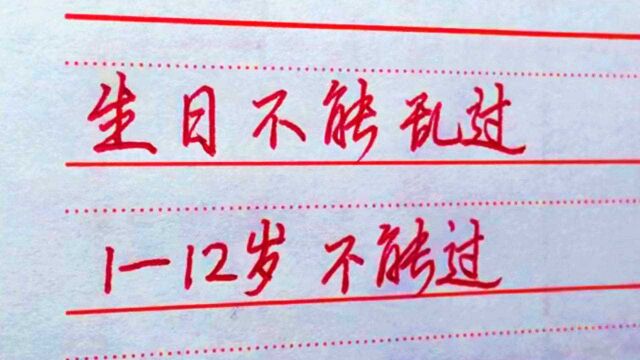 生日不能乱过
1一12岁 不能过